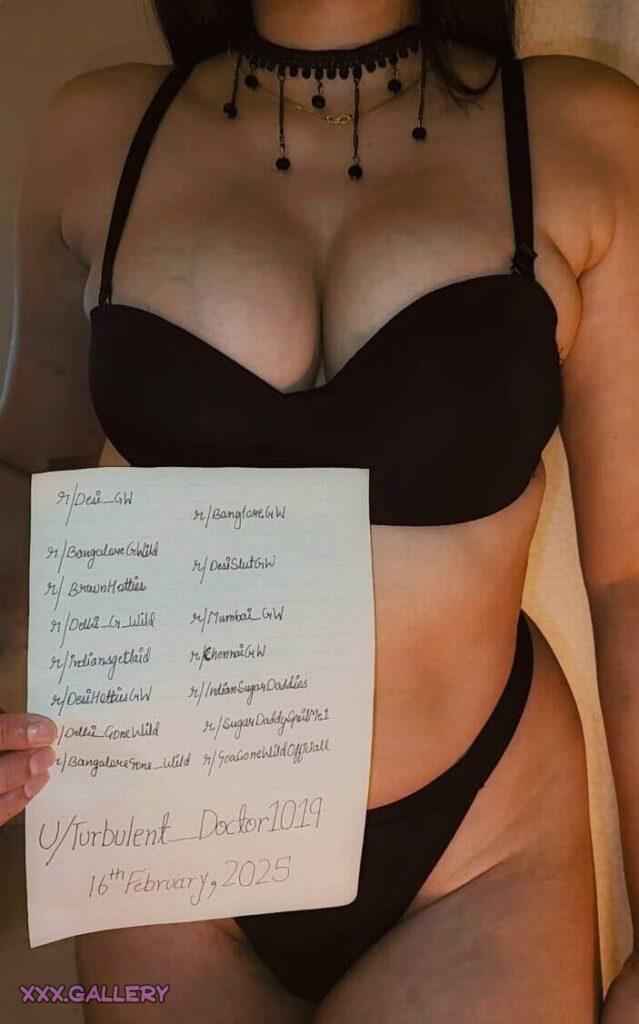 r/Desi_GW
r/BangloreGW
r/BangaloreGWild
r/DesiSlutGW
r/BrownHotties
r/Delhi_G_Wild
r/Mumbai_GW
r/indiansgetlaid
r/ChennaiGW
r/DesiHottiesGW
r/IndianSugarDaddies
r/Delhi_GoneWild
r/BangaloreGone_Wild
r/GoaGoneWildOfficiall
U/Turbulent_Doctor1019
16th February, 2025
XXX.GALLERY